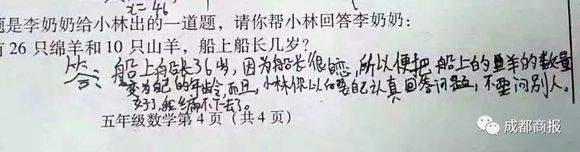 x=46
题是李奶奶给小林出的一道题，请你帮小林回答李奶奶：
有26只绵羊和10只山羊，船上船长几岁？
答：船上船长36岁，因为船长很恋，所以便把船上的羊的数量
变为自己的年龄，而且，小林你以后要自己认真回答问题，不要问别人。
孩子，我只能帮你到这了。
五年级数学第4页（共4页）
成都商报